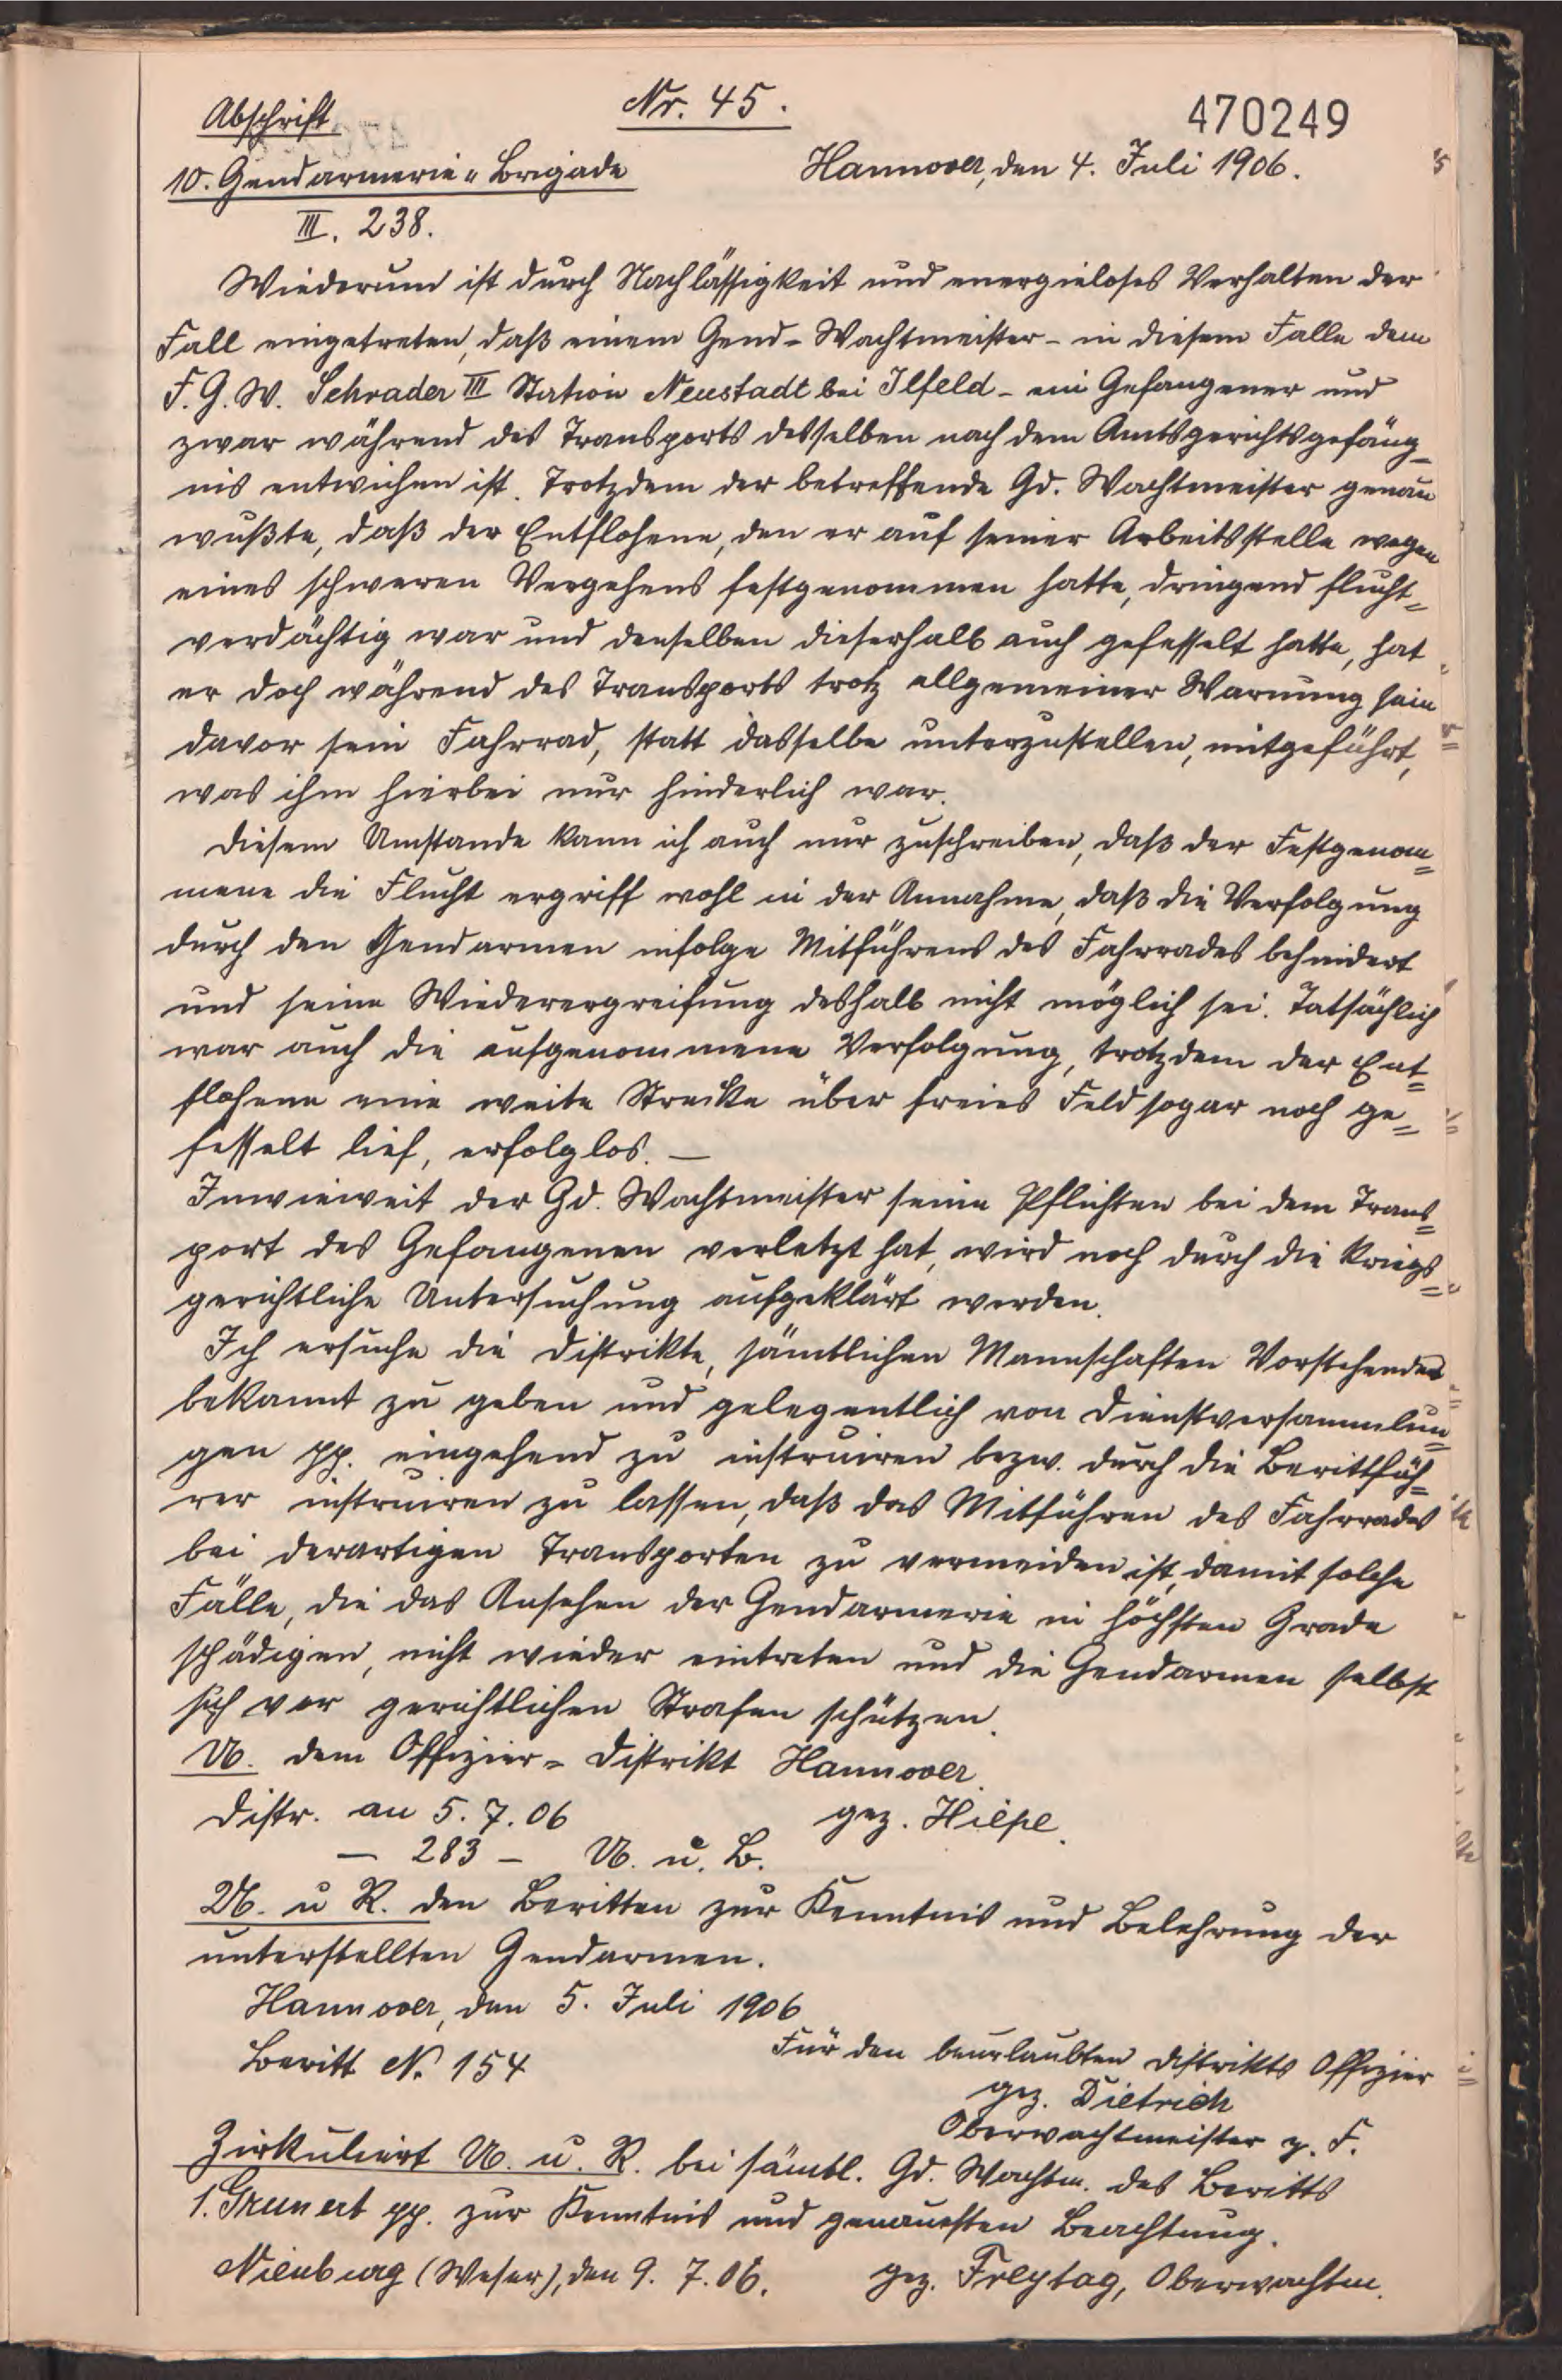 Nr. 45.
470249
Abschrift
10. Gendarmerie-Brigade
Hannover, den 4. Juli 1906.
III. 238.
Wiederum ist durch Nachlässigkeit und energieloses Verhalten der
Fall eingetreten, daß einem Gend-Wachtmeister - in diesem Falle dem
F. G. W. Schrader III Station Neustadt bei Ilfeld - ein Gefangener und
zwar während des Transports desselben nach dem Amtsgerichtsgefäng-
nis entwichen ist. Trotzdem der betreffende Gd. Wachtmeister genau
wußte, daß der Entflohene, den er auf seiner Arbeitsstelle wegen
eines schweren Vergehens festgenommen hatte, dringend flucht-
verdächtig war und denselben dieserhalb auch gefesselt hatte, hat
er doch während des Transports trotz allgemeiner Warnung
davor sein Fahrrad, statt dasselbe unterzustellen, mitgeführt,
was ihm hierbei nur hinderlich war.
Diesem Umstande kann ich auch nur zuschreiben, daß der Festgenom=
mene die Flucht ergriff wohl in der Annahme, daß die Verfolgung
durch den Gendarmen infolge Mitführens des Fahrrades behindert
und seine Wiederergreifung deshalb nicht möglich sei. Tatsächlich
war auch die aufgenommene Verfolgung, trotzdem der Ent=
flohene eine weite Strecke über freies Feld sogar noch ge=
fesselt lief, erfolglos. —
Inwieweit der Gd. Wachtmeister seine Pflichten bei dem Trans=
port des Gefangenen verletzt hat, wird noch durch die kriegs=
gerichtliche Untersuchung aufgeklärt werden.
Ich ersuche die Distrikte, sämtlichen Mannschaften Vorstehendes
bekannt zu geben und gelegentlich von Dienstversammlun=
gen pp. eingehend zu instruiren bezw. durch die Berittfüh=
rer instruiren zu lassen, daß das Mitführen des Fahrrades
bei derartigen Transporten zu vermeiden ist, damit solche
Fälle, die das Ansehen der Gendarmerie in höchsten Grade
schädigen, nicht wieder eintreten und die Gendarmen selbst
sich vor gerichtlichen Strafen schützen.
U. dem Offizier-Distrikt Hannover.
Distr. an 5. 7. 06
gez. Hiepe.
— 283 — U. u. B.
U. u R. den Beritten zur Kenntnis und Belehrung der
unterstellten Gendarmen.
Hannover, den 5. Juli 1906
Beritt N. 154
Für den beurlaubten Distrikts Offizier
gez. Dietrich
Oberwachtmeister z. F.
Zirkuliert U. u. R. bei sämtl. Gd. Wachtm. des Beritts
1. Grunert pp. zur Kenntnis und genauesten Beachtung.
Nienburg (Weser), den 9. 7. 06.
gez. Freytag, Oberwachtm.